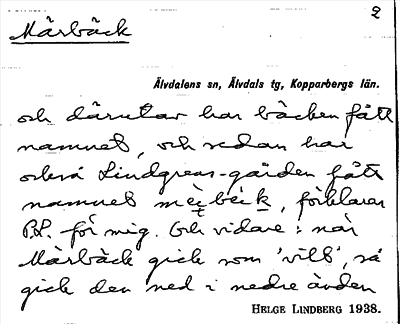 2
Mårbäck
Älvdalens sn, Älvdals tg, Kopparbergs län.
och därutav har bäcken fått
namnet, och sedan har
också Lindgrens-gården fått
namnet, förklarar
P.L. för mig. Och vidare: när
Mårbäck gick som 'vilt', så
gick den ned i nedre ändan
HELGE LINDBERG 1938.